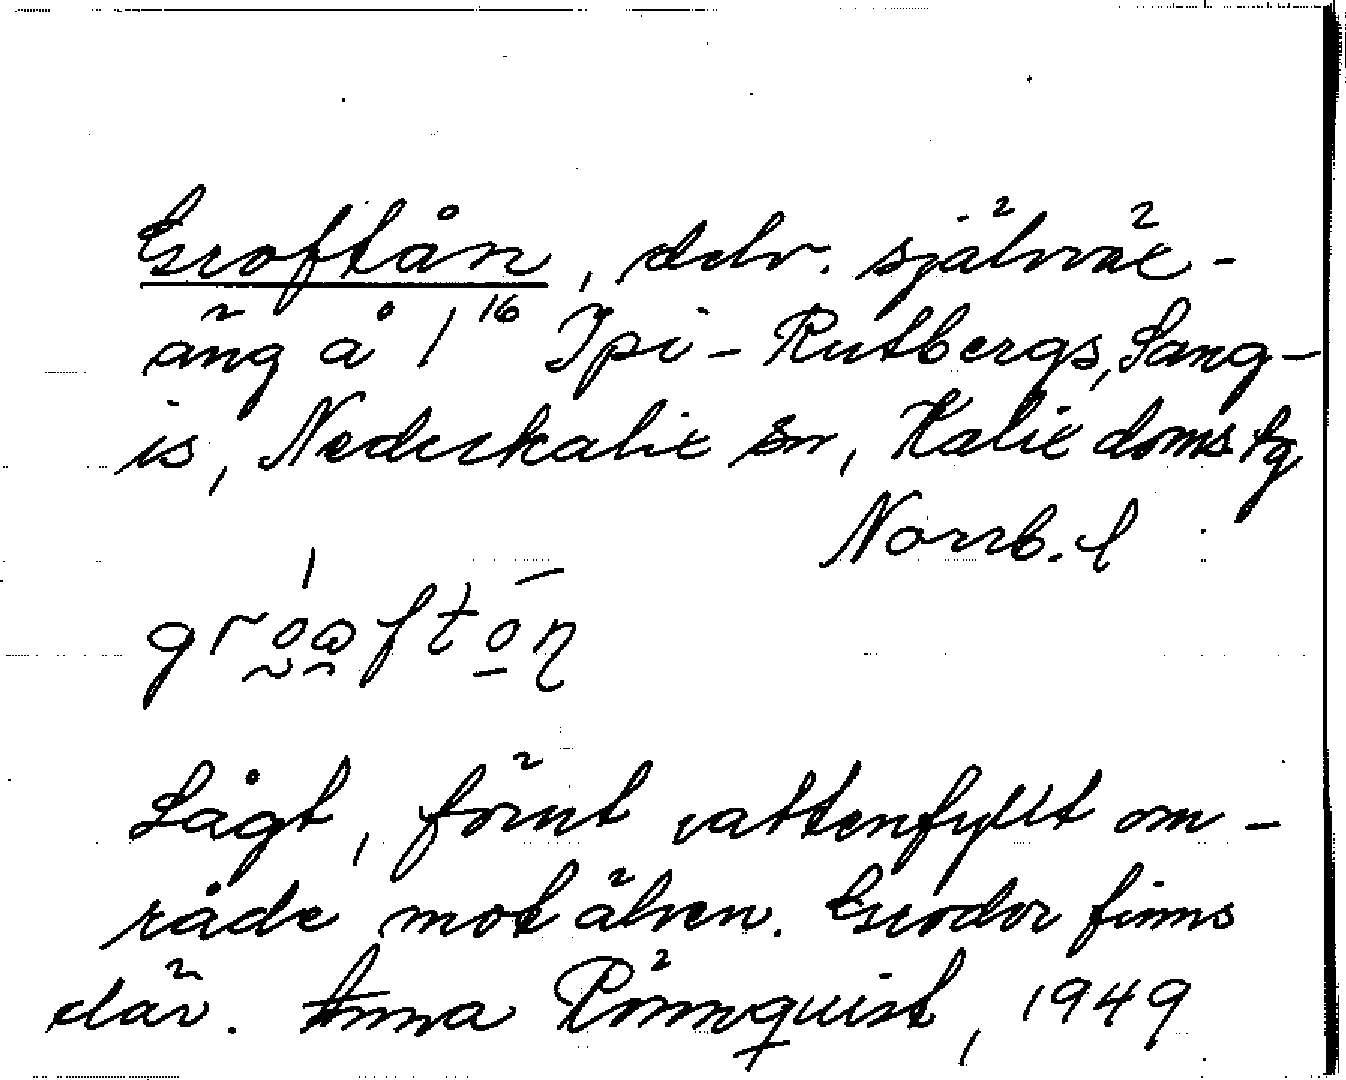 Groftån, delv. självräk-
äng å 1 16 Ipi-Rutbergs, Sang-
is, Nederkalix sn, Kalix doms. tg
Norrb. l
Lågt, förut vattenfyllt om-
råde mot älven. Grodor finns
där. Anna Rönnquist, 1949